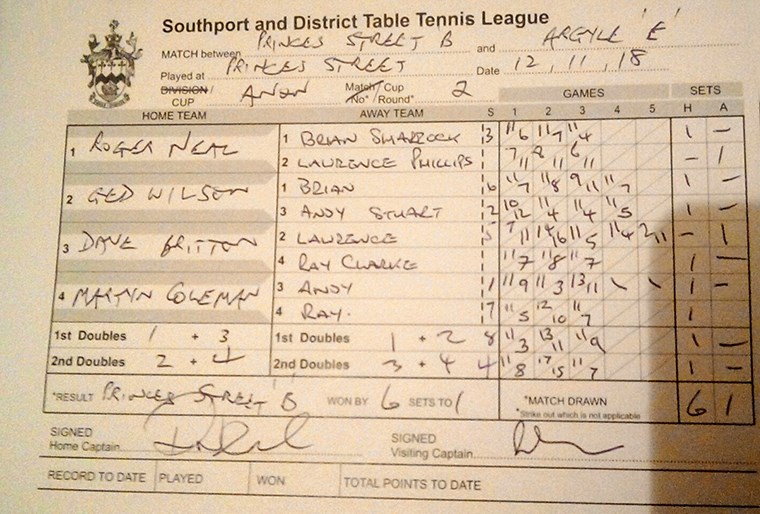 Southport and District Table Tennis League
MATCH between PRINCES STREET B and ARGYLE 'E'
Played at PRINCES STREET Date 12/11/18
DIVISION / CUP ANON Match/Cup No*/Round* 2 GAMES SETS
HOME TEAM AWAY TEAM S 1 2 3 4 5 H A
1 ROGER NEAL 1 BRIAN SHARROCK 13 11/6 11/7 11/4 1 –
2 LAURENCE PHILLIPS 7/11 8/11 6/11 – 1
2 GED WILSON 1 BRIAN 11/7 11/8 9/11 11/7 1 –
3 ANDY STUART 12 10/12 11/4 11/4 11/5 1 –
3 DAVE BRITTON 2 LAURENCE 5 7/11 14/16 11/5 11/4 2/11 – 1
4 RAY CLARKE 11/7 11/8 11/7 1 –
4 MARTYN COLEMAN 3 ANDY 11/9 11/3 13/11 1 –
4 RAY. 17 11/5 12/10 11/7 1
1st Doubles 1 + 3 1st Doubles 1 + 2 8 11/3 13/11 11/9 1 –
2nd Doubles 2 + 4 2nd Doubles 3 + 4 4 11/8 17/15 11/7 1 –
*RESULT PRINCES STREET B WON BY 6 SETS TO 1 *MATCH DRAWN 6 1
*Strike out which is not applicable
SIGNED
Home Captain
SIGNED
Visiting Captain
RECORD TO DATE PLAYED WON TOTAL POINTS TO DATE